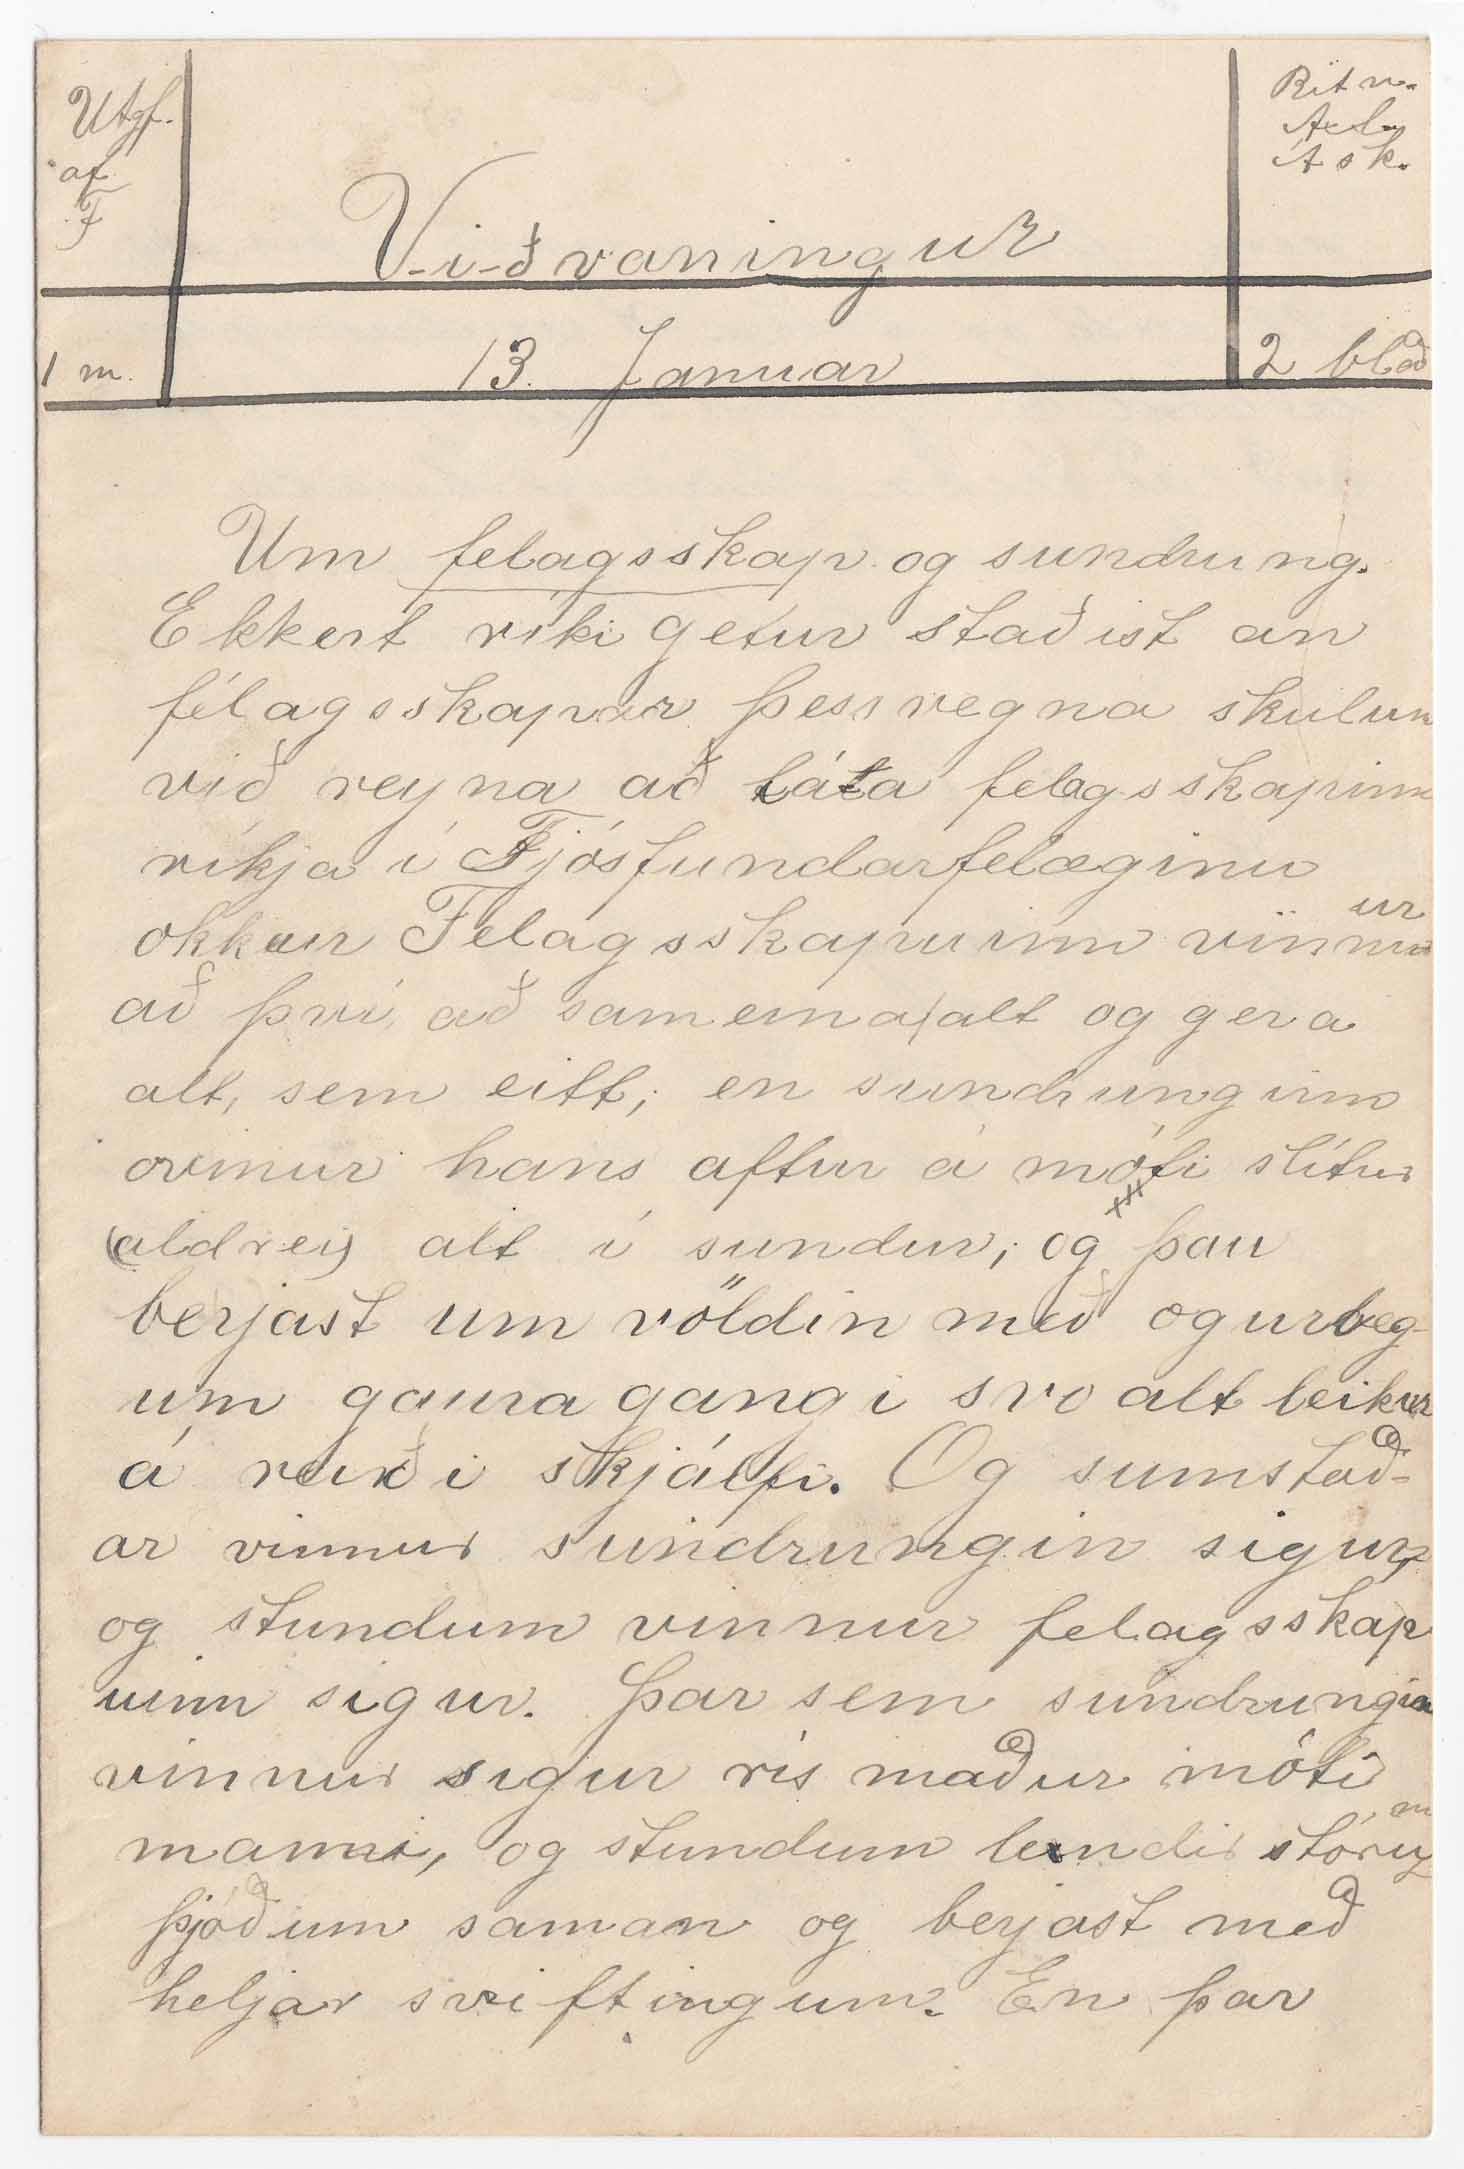 Utgf.
af
F
Viðvaningur
Ritn.
Ask.
1 m.
13. Januar
2 blað
Um felagsskap og sundrung.
Ekkert ríki getur staðist an
félagsskapar þessvegna skulum
við reyna að láta felagsskapinn
ríkja í Fjósfundarfelæginu
okkar Felagsskapurinn vinnur
að því að sameina alt og gera
alt, sem eitt; en sundrungin
ovinur hans aftur á móti slítur
(aldrei) alt í sundur; og þau
berjast um völdin með ogurleg-
um gauragangi svo alt leikur
á reiði skjálfi. Og sumstað-
ar vinnur sundrungin sigur,
og stundum vinnur felagsskap
urinn sigur. Þar sem sundrungin
vinnur sigur rís maður móti
manni, og stundum lendir stórum
þjóðum saman og berjast með
heljar sviftingum. En þar